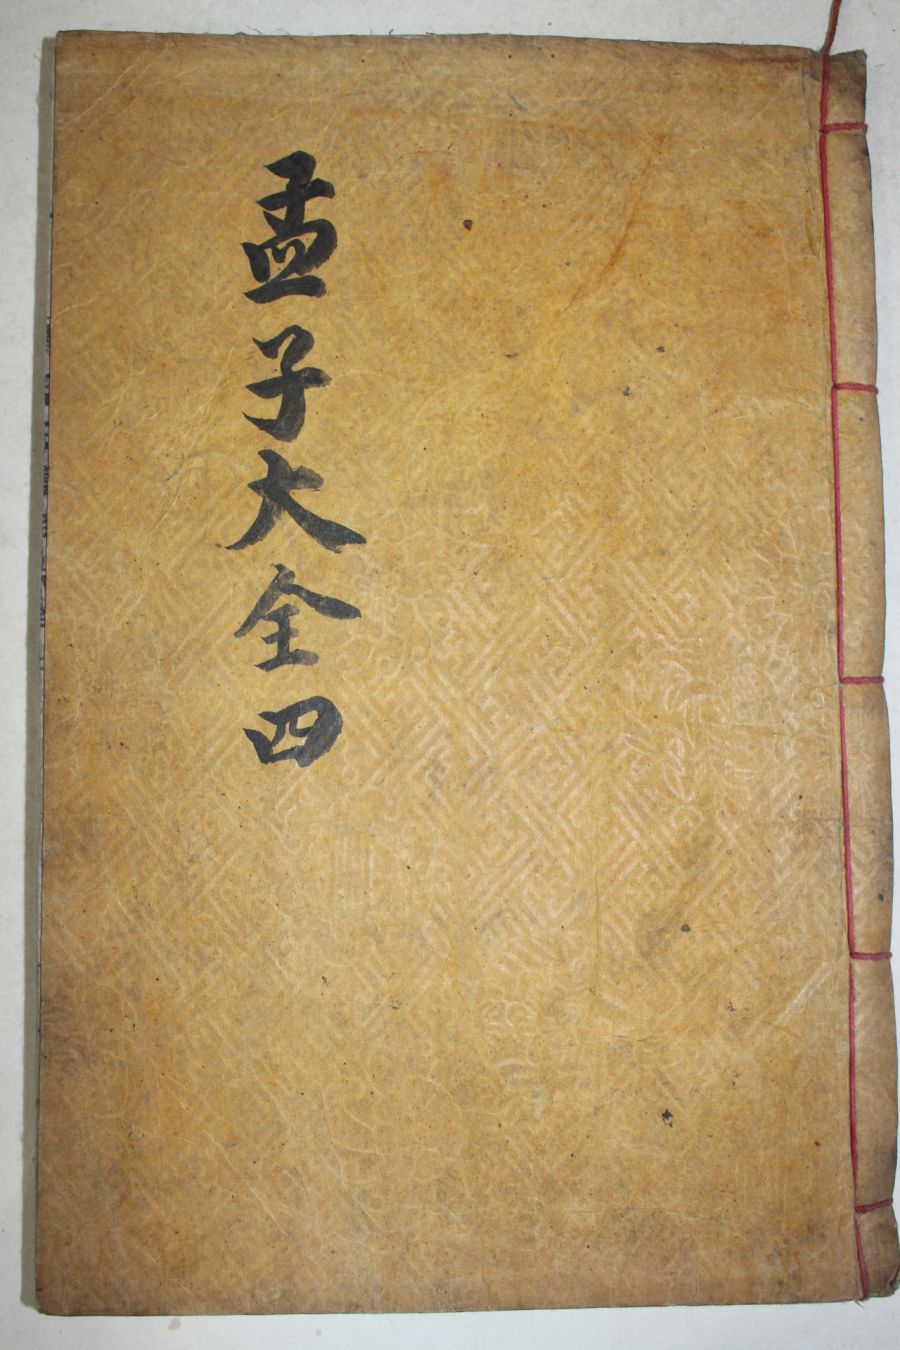 孟子大全四